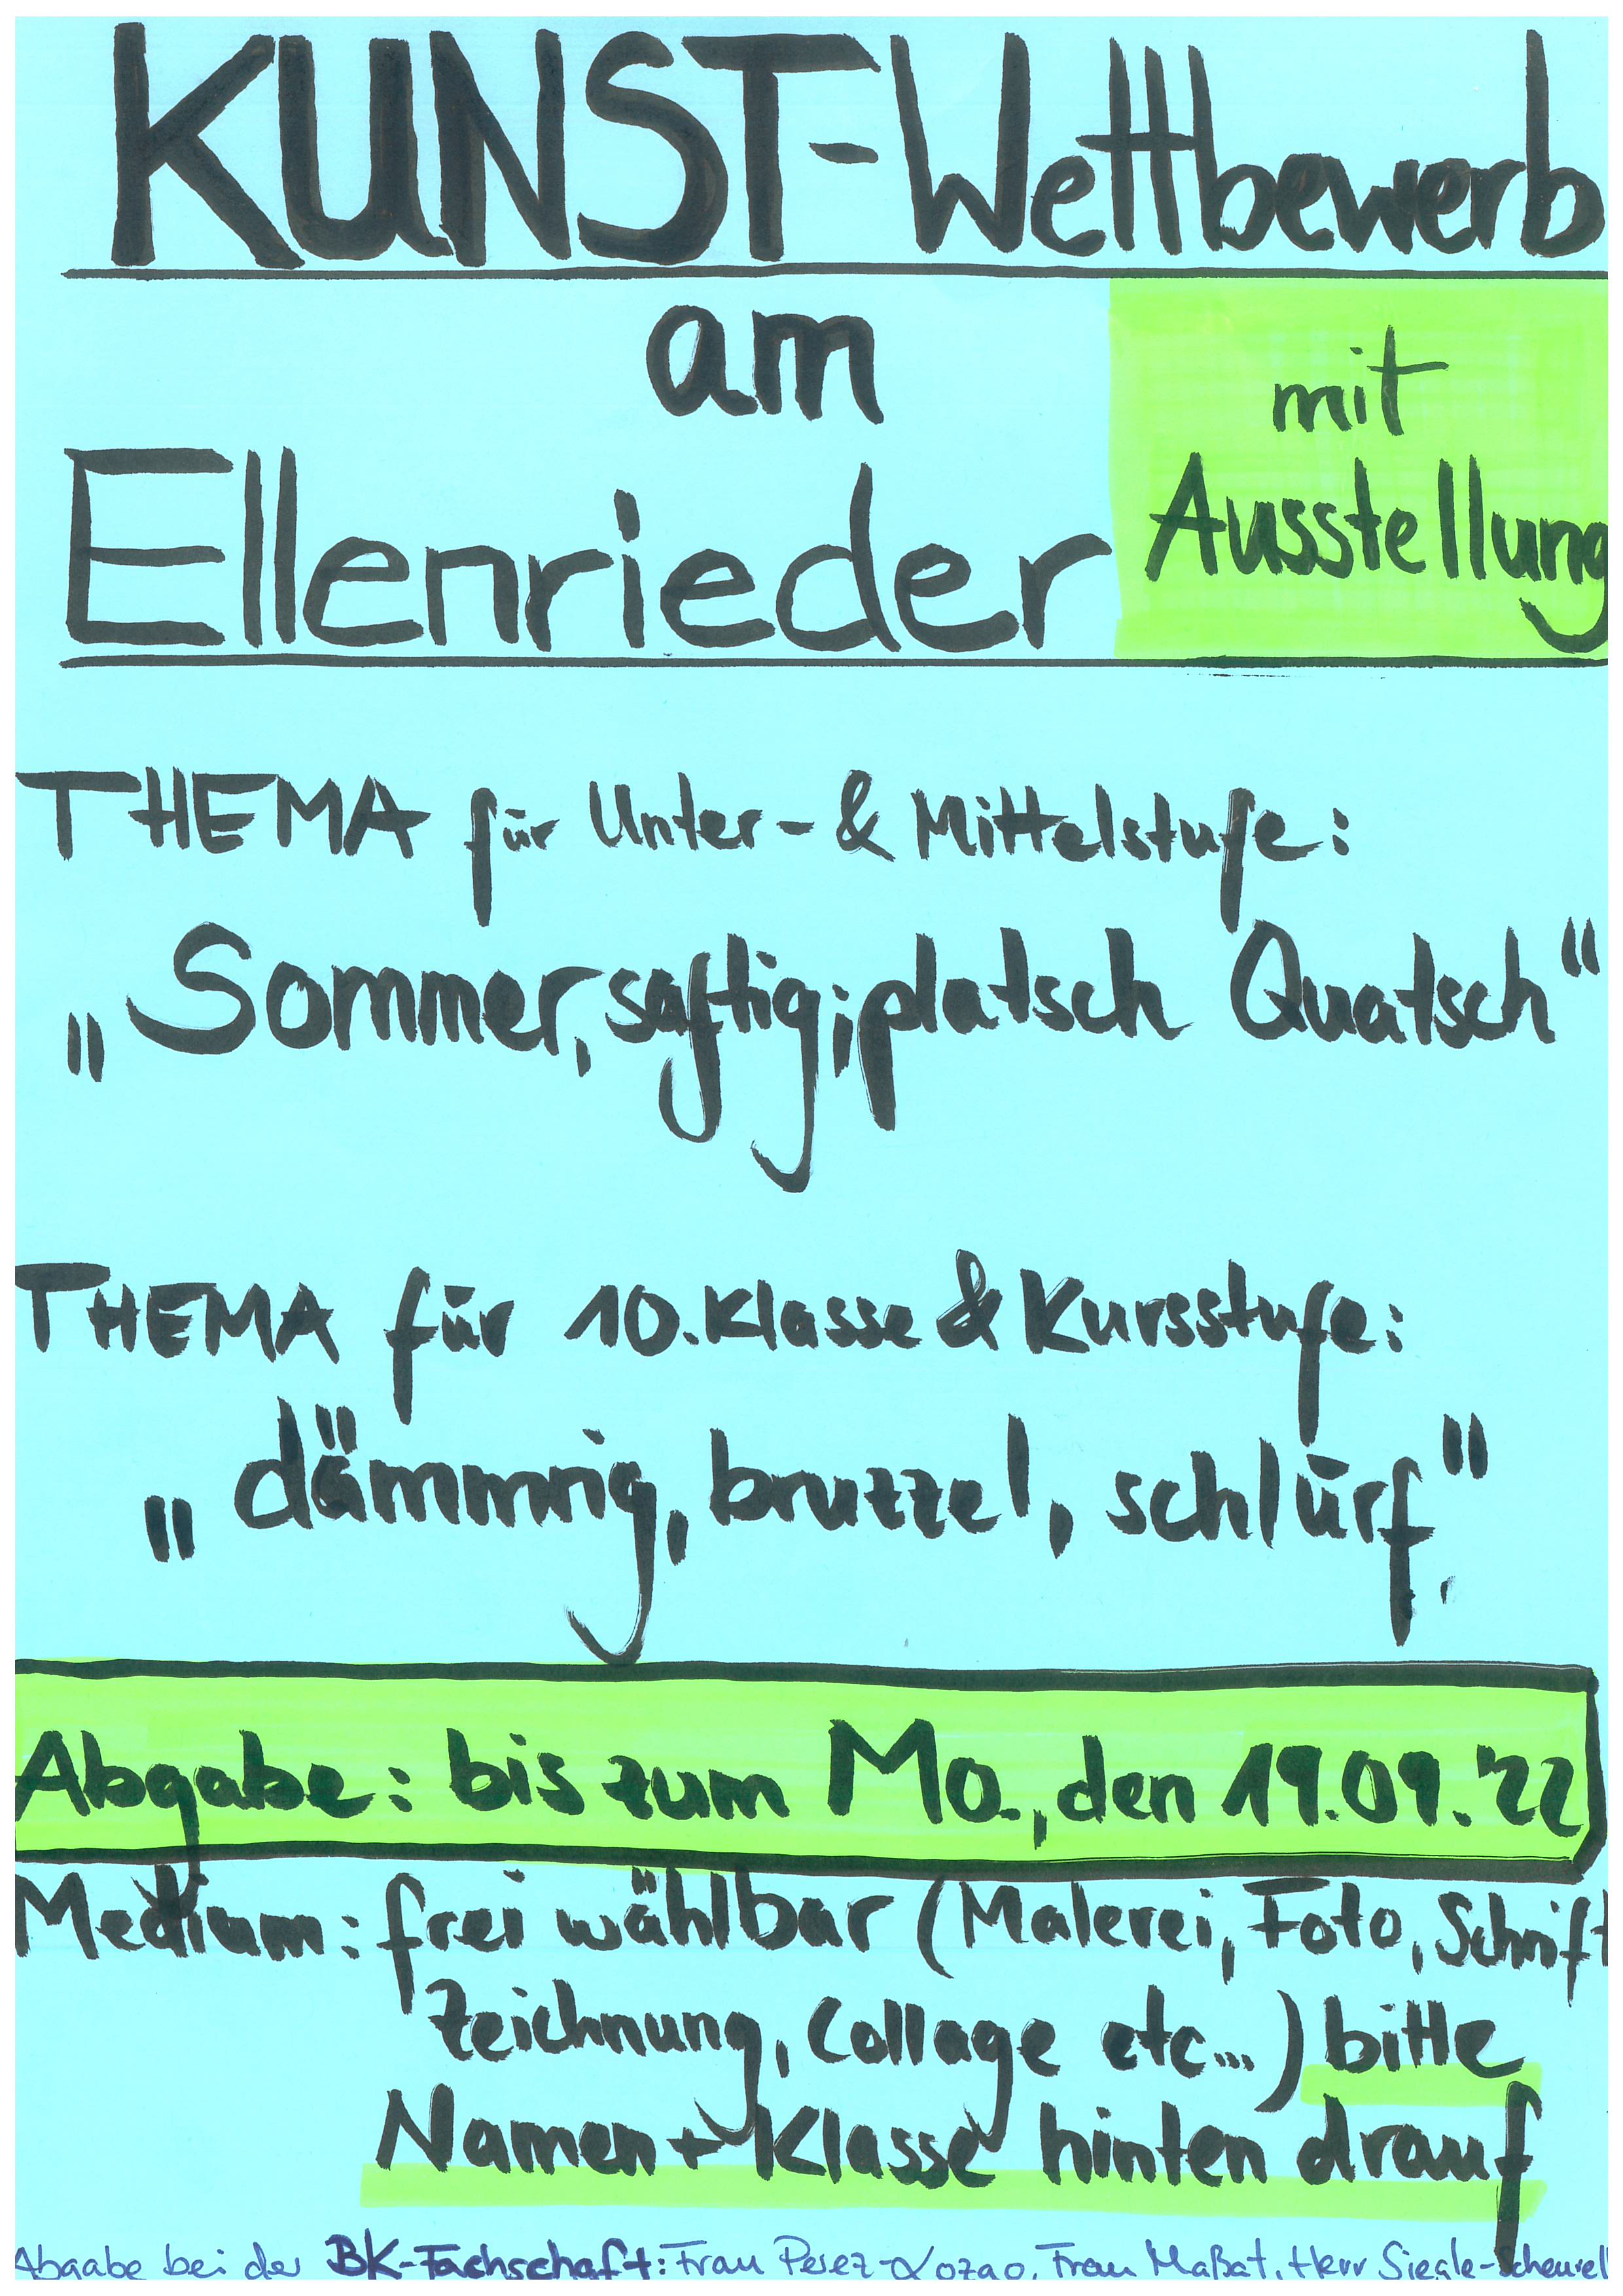 KUNST-Wettbewerb
am
mit
Ausstellung
Ellenrieder
THEMA für Unter- & Mittelstufe:
„Sommer, saftig, platsch Quatsch“
THEMA für 10. Klasse & Kursstufe:
„dämmrig, bruzzel, schlürf“
Abgabe: bis zum Mo., den 19.09.'22
Medium: frei wählbar (Malerei, Foto, Schrift
Zeichnung, Collage etc...) bitte
Namen + Klasse hinten drauf
Abgabe bei der BK-Fachschaft: Frau Perez-Lozao, Frau Maßat, Herr Siegle-Scheurell